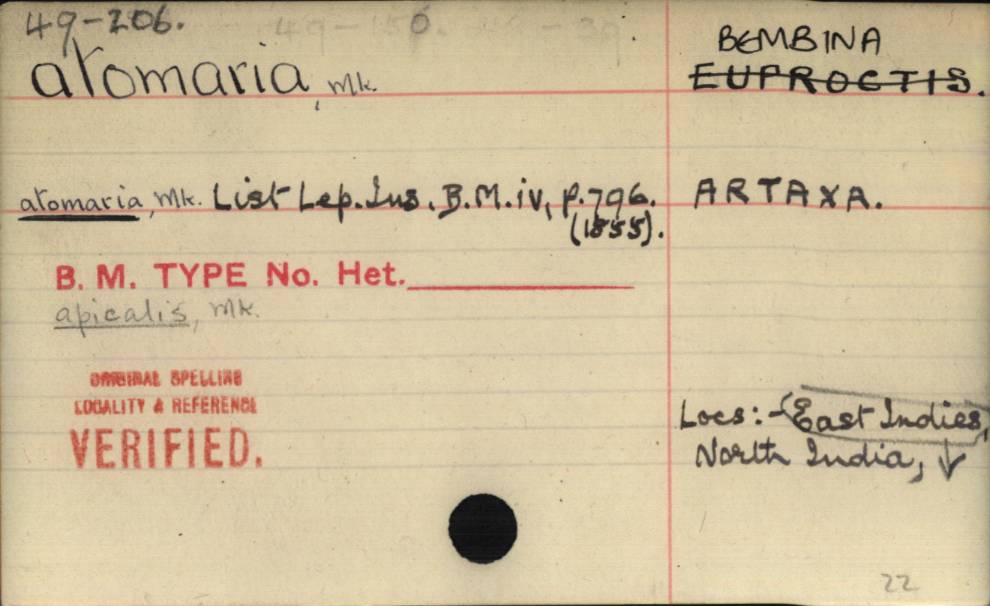 49-206.
BEMBINA
atomaria, Wlk.
EUPROCTIS.
atomaria, Wlk. List Lep. Ins. B.M. iv, p.796. (1855).
ARTAXA.
B. M. TYPE No. Het.
apicalis, Wlk.
ORIGINAL SPELLING
LOCALITY & REFERENCE
VERIFIED.
Locs:- East Indies,
North India, ↓
22